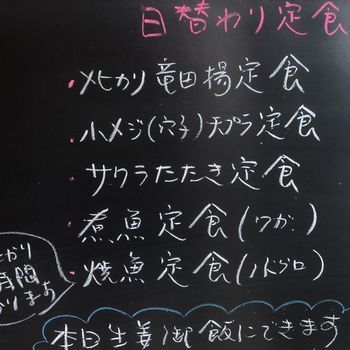 日替わり定食
・メヒカリ竜田揚定食
・ハメジ(穴子)天プラ定食
・サクラたたき定食
・煮魚定食(ワガ)
・焼魚定食(ノドグロ)
本日生姜御飯にできます